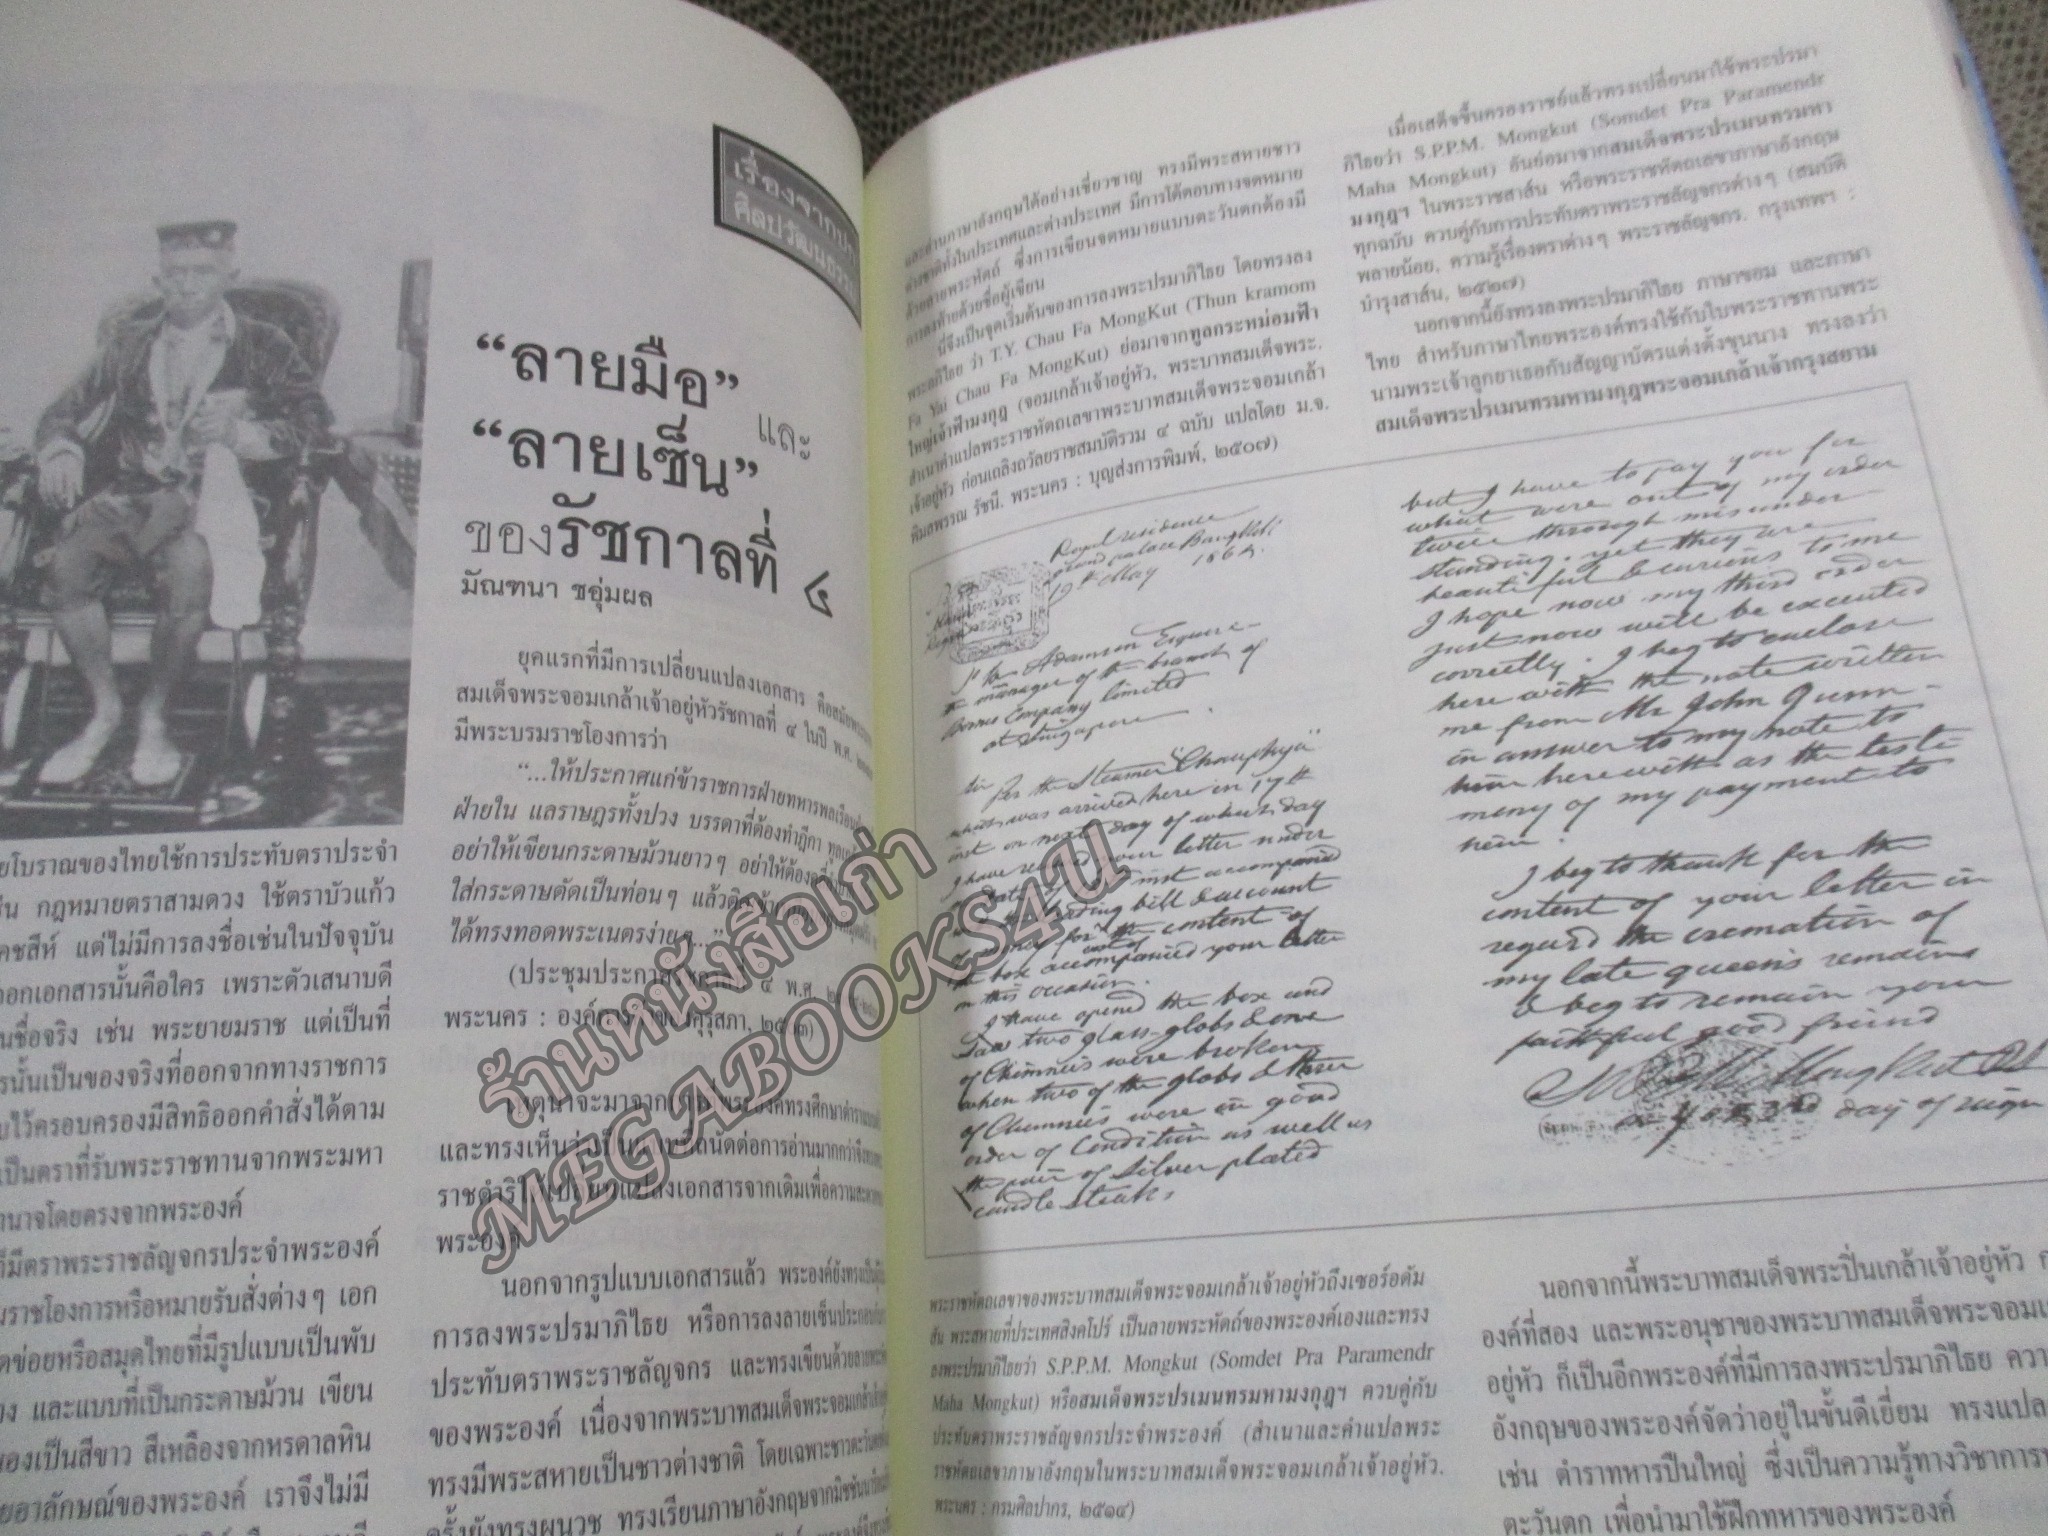 เรื่องจากปก
ศิลปวัฒนธรรม
“ลายมือ” และ
“ลายเซ็น”
ของรัชกาลที่ ๔
มัณฑนา ชอุ่มผล
ยโบราณของไทยใช้การประทับตราประจำ
กฎหมายตราสามดวง ใช้ตราบัวแก้ว
คชสีห์ แต่ไม่มีการลงชื่อเช่นในปัจจุบัน
อกเอกสารนั้นคือใคร เพราะตัวเสนาบดี
นชื่อจริง เช่น พระยายมราช แต่เป็นที่
รนั้นเป็นของจริงที่ออกจากทางราชการ
ไว้ครอบครองมีสิทธิออกคำสั่งได้ตาม
เป็นตราที่รับพระราชทานจากพระมหา
านาจโดยตรงจากพระองค์
ก็มีตราพระราชลัญจกรประจำพระองค์
ราชโองการหรือหมายรับสั่งต่างๆ เอก
ดข่อยหรือสมุดไทยที่มีรูปแบบเป็นพับ
และแบบที่เป็นกระดาษม้วน เขียน
องเป็นสีขาว สีเหลืองจากหรดาลหิน
ยอาลักษณ์ของพระองค์ เราจึงไม่มี
ยุคแรกที่มีการเปลี่ยนแปลงเอกสาร คือสมัย
สมเด็จพระจอมเกล้าเจ้าอยู่หัวรัชกาลที่ ๔ ในปี พ.ศ.
มีพระบรมราชโองการว่า
“...ให้ประกาศแก่ข้าราชการฝ่ายทหารพลเรือน
ฝ่ายใน แลราษฎรทั้งปวง บรรดาที่ต้องทำฎีกา
อย่าให้เขียนกระดาษม้วนยาวๆ อย่าให้ต้อง
ใส่กระดาษตัดเป็นท่อนๆ แล้ว
ได้ทรงทอดพระเนตรง่ายๆ...”
(ประชุมประกาศรัชกาลที่ ๔ พ.ศ.
พระนคร : องค์การค้าของคุรุสภา,
เหตุน่าจะมาจากการที่พระองค์ทรงศึกษาตำรา
และทรงเห็นว่าเป็นความถนัดต่อการอ่านมากกว่าจึง
ราชดำริให้เปลี่ยนแปลงเอกสารจากเดิมเพื่อความ
พระองค์
นอกจากรูปแบบเอกสารแล้ว พระองค์ยังทรง
การลงพระปรมาภิไธย หรือการลงลายเซ็นประกอบ
ประทับตราพระราชลัญจกร และทรงเขียนด้วยลายพระ
ของพระองค์ เนื่องจากพระบาทสมเด็จพระจอมเกล้า
ทรงมีพระสหายเป็นชาวต่างชาติ โดยเฉพาะชาวตะวันตก
ครั้งยังทรงผนวช ทรงเรียนภาษาอังกฤษจากมิชชันนารี
และอ่านภาษาอังกฤษได้อย่างเชี่ยวชาญ ทรงมีพระสหายชาว
ต่างชาติทั้งในประเทศและต่างประเทศ มีการโต้ตอบทางจดหมาย
ด้วยลายพระหัตถ์ ซึ่งการเขียนจดหมายแบบตะวันตกต้องมี
การลงท้ายด้วยชื่อผู้เขียน
นี่จึงเป็นจุดเริ่มต้นของการลงพระปรมาภิไธย โดยทรงลง
พระอภิไธย ว่า T.Y. Chau Fa MongKut (Thun kramom
Fa Yai Chau Fa MongKut) ย่อมาจากทูลกระหม่อมฟ้า
ใหญ่เจ้าฟ้ามงกุฎ (จอมเกล้าเจ้าอยู่หัว, พระบาทสมเด็จพระ.
สำเนาคำแปลพระราชหัตถเลขาพระบาทสมเด็จพระจอมเกล้า
เจ้าอยู่หัว ก่อนเถลิงถวัลยราชสมบัติรวม ๔ ฉบับ แปลโดย ม.จ.
พิมลพรรณ รัชนี. พระนคร : บุญส่งการพิมพ์, ๒๕๐๗)
เมื่อเสด็จขึ้นครองราชย์แล้วทรงเปลี่ยนมาใช้พระปรมา
ภิไธยว่า S.P.P.M. Mongkut (Somdet Pra Paramendr
Maha Mongkut) อันย่อมาจากสมเด็จพระปรเมนทรมหา
มงกุฎฯ ในพระราชสาส์น หรือพระราชหัตถเลขาภาษาอังกฤษ
ทุกฉบับ ควบคู่กับการประทับตราพระราชลัญจกรต่างๆ (สมบัติ
พลายน้อย, ความรู้เรื่องตราต่างๆ พระราชลัญจกร. กรุงเทพฯ :
บำรุงสาส์น, ๒๕๒๗)
นอกจากนี้ยังทรงลงพระปรมาภิไธย ภาษาขอม และภาษา
ไทย สำหรับภาษาไทยพระองค์ทรงใช้กับใบพระราชทานพระ
นามพระเจ้าลูกยาเธอกับสัญญาบัตรแต่งตั้งขุนนาง ทรงลงว่า
สมเด็จพระปรเมนทรมหามงกุฎพระจอมเกล้าเจ้ากรุงสยาม
Royal residence
grand palace Bangkok
19th May 186
To Adamson Esquire
the manager of the branch of
Borneo Company limited
at Singapore.
Sir Per the Steamer "Chauphya"
which was arrived here in 17th
inst on next day of which day
I have received your letter under
date of inst accompanied
with the lading bill & account
for the content of
the box accompanied your letter
on this occasion.
I have opened the box and
Saw two glass-globs & one
of Chimnies were broken
when two of the globs & three
of Chimnies were in good
order of Condition as well as
the pair of Silver plated
candle steaks
but I have to pay you for
what were out of my order
twice through misunder-
standing. yet they are
beautiful & curious to me
I hope now my third order
just now will be excented
correctly. I beg to enclose
here with the note written
me from Mr John Gunn-
in answer to my note to
him herewith as the testi
mony of my payment to
him.
I beg to thank for the
content of your letter in
regard the cremation of
my late queen's remains
I beg to remain your
faithful good friend
MongKut
day of reign
พระราชหัตถเลขาของพระบาทสมเด็จพระจอมเกล้าเจ้าอยู่หัวถึงเซอร์อดัม
สัน พระสหายที่ประเทศสิงคโปร์ เป็นลายพระหัตถ์ของพระองค์เองและทรง
ลงพระปรมาภิไธยว่า S.P.P.M. Mongkut (Somdet Pra Paramendr
Maha Mongkut) หรือสมเด็จพระปรเมนทรมหามงกุฎฯ ควบคู่กับ
ประทับตราพระราชลัญจกรประจำพระองค์ (สำเนาและคำแปลพระ
ราชหัตถเลขาภาษาอังกฤษในพระบาทสมเด็จพระจอมเกล้าเจ้าอยู่หัว.
พระนคร : กรมศิลปากร, ๒๕๑๔)
นอกจากนี้พระบาทสมเด็จพระปิ่นเกล้าเจ้าอยู่หัว
องค์ที่สอง และพระอนุชาของพระบาทสมเด็จพระจอม
อยู่หัว ก็เป็นอีกพระองค์ที่มีการลงพระปรมาภิไธย ความ
อังกฤษของพระองค์จัดว่าอยู่ในขั้นดีเยี่ยม ทรงแปล
เช่น ตำราทหารปืนใหญ่ ซึ่งเป็นความรู้ทางวิชาการ
ตะวันตก เพื่อนำมาใช้ฝึกทหารของพระองค์
ร้านหนังสือเก่า
MEGABOOKS4U